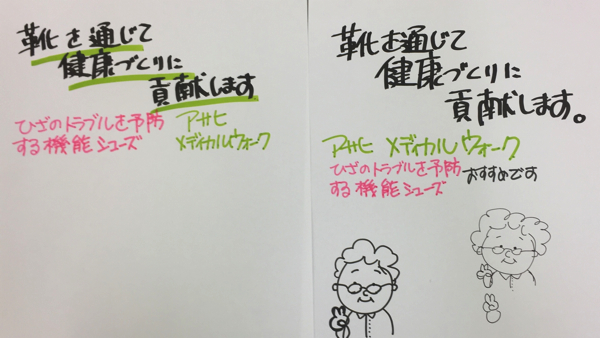 靴を通じて
健康づくりに
貢献します
ひざのトラブルを予防
する機能シューズ
アサヒ
メディカルウォーク
靴お通じて
健康づくりに
貢献します。
アサヒ メディカルウォーク
ひざのトラブルを予防
する機能シューズ
おすすめです